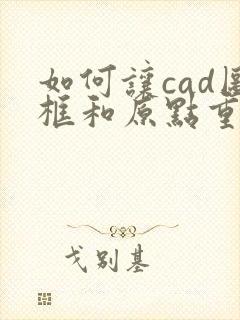 如何讓cad
框和原點重
戈別基